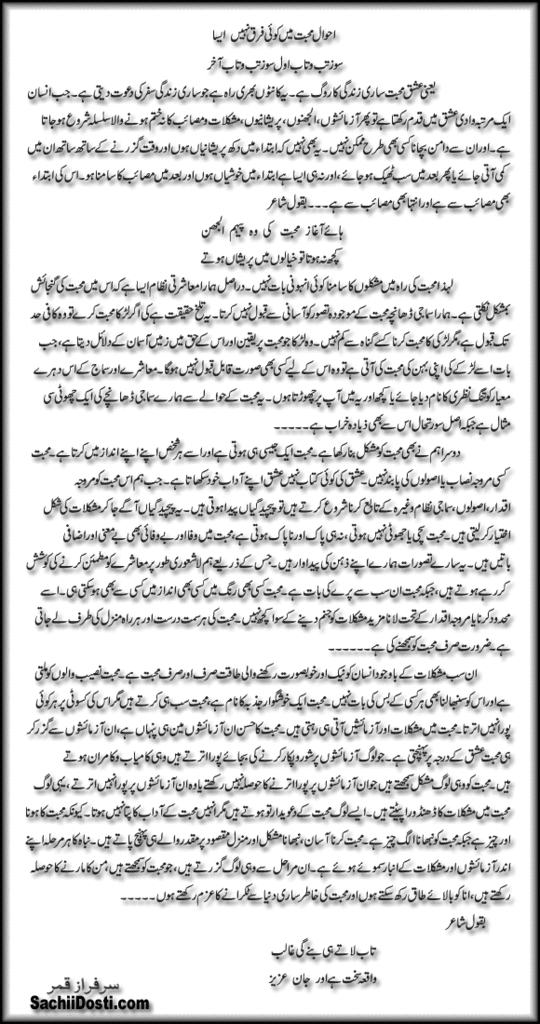 احوال محبت میں کوئی فرق نہیں ایسا
سوز تب و تاب اول سوز تب و تاب آخر
یعنی عشق محبت ساری زندگی کا روگ ہے۔ یہ کانٹوں بھری راہ ہے جو ساری زندگی سفر کی دعوت دیتی ہے۔ جب انسان
ایک مرتبہ وادی عشق میں قدم رکھتا ہے تو پھر آزمائشوں، الجھنوں، پریشانیوں، مشکلات و مصائب کا نہ ختم ہونے والا سلسلہ شروع ہو جاتا
ہے۔ اور ان سے دامن بچانا کسی بھی طرح ممکن نہیں۔ یہ بھی نہیں کہ ابتداء میں دکھ پریشانیاں ہوں اور وقت گزرنے کے ساتھ ساتھ ان میں
کمی آتی جائے یا پھر بعد میں سب ٹھیک ہو جائے، اور نہ ہی ایسا ہے ابتداء میں خوشیاں ہوں اور بعد میں مصائب کا سامنا ہو۔ اس کی ابتداء
بھی مصائب سے ہے اور انتہا بھی مصائب سے ہے۔۔۔ بقول شاعر
ہائے آغاز محبت کی وہ پیہم الجھن
کچھ نہ ہوتا تو خیالوں میں پریشاں ہوتے
لہذا محبت کی راہ میں مشکلوں کا سامنا کوئی انہونی بات نہیں۔ دراصل ہمارا معاشرتی نظام ایسا ہے کہ اس میں محبت کی گنجائش
بمشکل نکلتی ہے۔ ہمارا سماجی ڈھانچہ محبت کے موجودہ تصور کو آسانی سے قبول نہیں کرتا۔ یہ تلخ حقیقت ہے کی اگر لڑکا محبت کرے تو وہ کافی حد
تک قبول ہے، مگر لڑکی کا محبت کرنا کسے گناہ سے کم نہیں۔ وہ لڑکا جو محبت پر یقین اور اس کے حق میں زمیں آسمان کے دلائل دیتا ہے، جب
بات اسے لڑکے کی اپنی بہن کی محبت کی آتی ہے تو وہ اس کے لیے کسی بھی صورت قابل قبول نہیں ہوگا۔ معاشرے اور سماج کے اس دہرے
معیار کو تنگ نظری کا نام دیا جائے یا کچھ اور یہ میں آپ پر چھوڑتا ہوں۔ یہ محبت کے حوالے سے ہمارے سماجی ڈھانچے کی ایک چھوٹی سی
مثال ہے جبکہ اصل سورتحال اس سے بھی زیادہ خراب ہے۔۔۔۔۔
دوسرا ہم نے بھی محبت کو مشکل بنا رکھا ہے۔ محبت ایک جیسی ہی ہوتی ہے اور اسے ہر شخص اپنے اپنے انداز میں کرتا ہے۔ محبت
کسی مروجہ نصاب یا اصولوں کی پابند نہیں۔ عشق کی کوئی کتاب نہیں عشق اپنے آداب خود سکھاتا ہے۔ جب ہم اس محبت کو مروجہ
اقدار، اصولوں، سماجی نظام وغیرہ کے تابع کرنا شروع کرتے ہیں تو پیچیدگیاں پیدا ہوتی ہیں۔ یہ پیچیدگیاں آگے جا کر مشکلات کی شکل
اختیار کر لیتی ہیں۔ محبت سچی یا جھوٹی نہیں ہوتی، نہ ہی پاک اور ناپاک ہوتی ہے، محبت میں وفا اور بے وفائی بھی بے معنی اور اضافی
باتیں ہیں۔ یہ سارے تصورات ہمارے اپنے ذہن کی پیداوار ہیں۔ جس کے ذریعے ہم لاشعوری طور پر معاشرے کو مطمئن کرنے کی کوشش
کر رہے ہوتے ہیں، جبکہ محبت ان سب سے پرے کی بات ہے۔ محبت کسی بھی رنگ میں کسی بھی انداز میں کسی سے بھی ہو سکتی ہی۔ اسے
محدود کرنا یا مروجہ اقدار کے تحت لانا مزید مشکلات کو جنم دینے کے سوا کچھ نہیں۔ محبت کی ہر سمت درست اور ہر راہ منزل کی طرف لے جاتی
ہے۔ ضرورت صرف محبت کو سمجھنے کی ہے۔۔۔۔۔۔
ان سب مشکلات کے باوجود انسان کو نیک اور خوبصورت رکھنے والی طاقت صرف اور صرف محبت ہے۔ محبت نصیب والوں کو ملتی
ہے اور اس کو سنبھالنا بھی ہر کسی کے بس کی بات نہیں۔ محبت ایک خوشگوار جذبہ کا نام ہے، محبت سب ہی کرتے ہیں مگر اس کی کسوٹی پر ہر کوئی
پورا نہیں اترتا۔ محبت میں مشکلات اور آزمائشیں آتی ہی رہتی ہیں۔ محبت کا حسن ان آزمائشوں مین ہی پنہاں ہے، ان آزمائشوں سے گزر کر
ہی محبت عشق کے درجہ پر پہنچتی ہے۔ جو لوگ آزمائشوں پر شور و پکار کرنے کی بجائے پورا اترتے ہیں وہی کامیاب و کامران ہوتے
ہیں۔ محبت کو وہی لوگ مشکل سمجھتے ہیں جو ان آزمائشوں پر پورا اترنے کا حوصلہ نہیں رکھتے یا وہ ان آزمائشوں پر پورا نہیں اترتے، یہی لوگ
محبت میں مشکلات کا ڈھنڈورا پیٹتے ہیں۔ ایسے لوگ محبت کے دعویدار تو ہوتے ہیں مگر انہیں محبت کے آداب کا پتا نہیں ہوتا۔ کیونکہ محبت کا ہونا
اور چیز ہے جبکہ محبت کو نبھانا الگ چیز ہے۔ محبت کرنا آسان، نبھانا مشکل اور منزل مقصود پر مقدر والے ہی پہنچ پاتے ہیں۔ نباہ کا ہر مرحلہ اپنے
اندر آزمائشوں اور مشکلات کے انبار سموئے ہوئے ہے۔ ان مراحل سے وہی لوگ گزرتے ہیں، جو محبت کو سمجھتے ہیں، من کا مارنے کا حوصلہ
رکھتے ہیں، انا کو بالائے طاق رکھ سکتے ہوں اور محبت کی خاطر ساری دنیا سے ٹکرانے کا عزم رکھتے ہوں۔۔۔۔۔
بقول شاعر
تاب لاتے ہی بنے گی غالب
واقعہ سخت ہے اور جان عزیز
سرفراز قمر
SachiiDosti.com